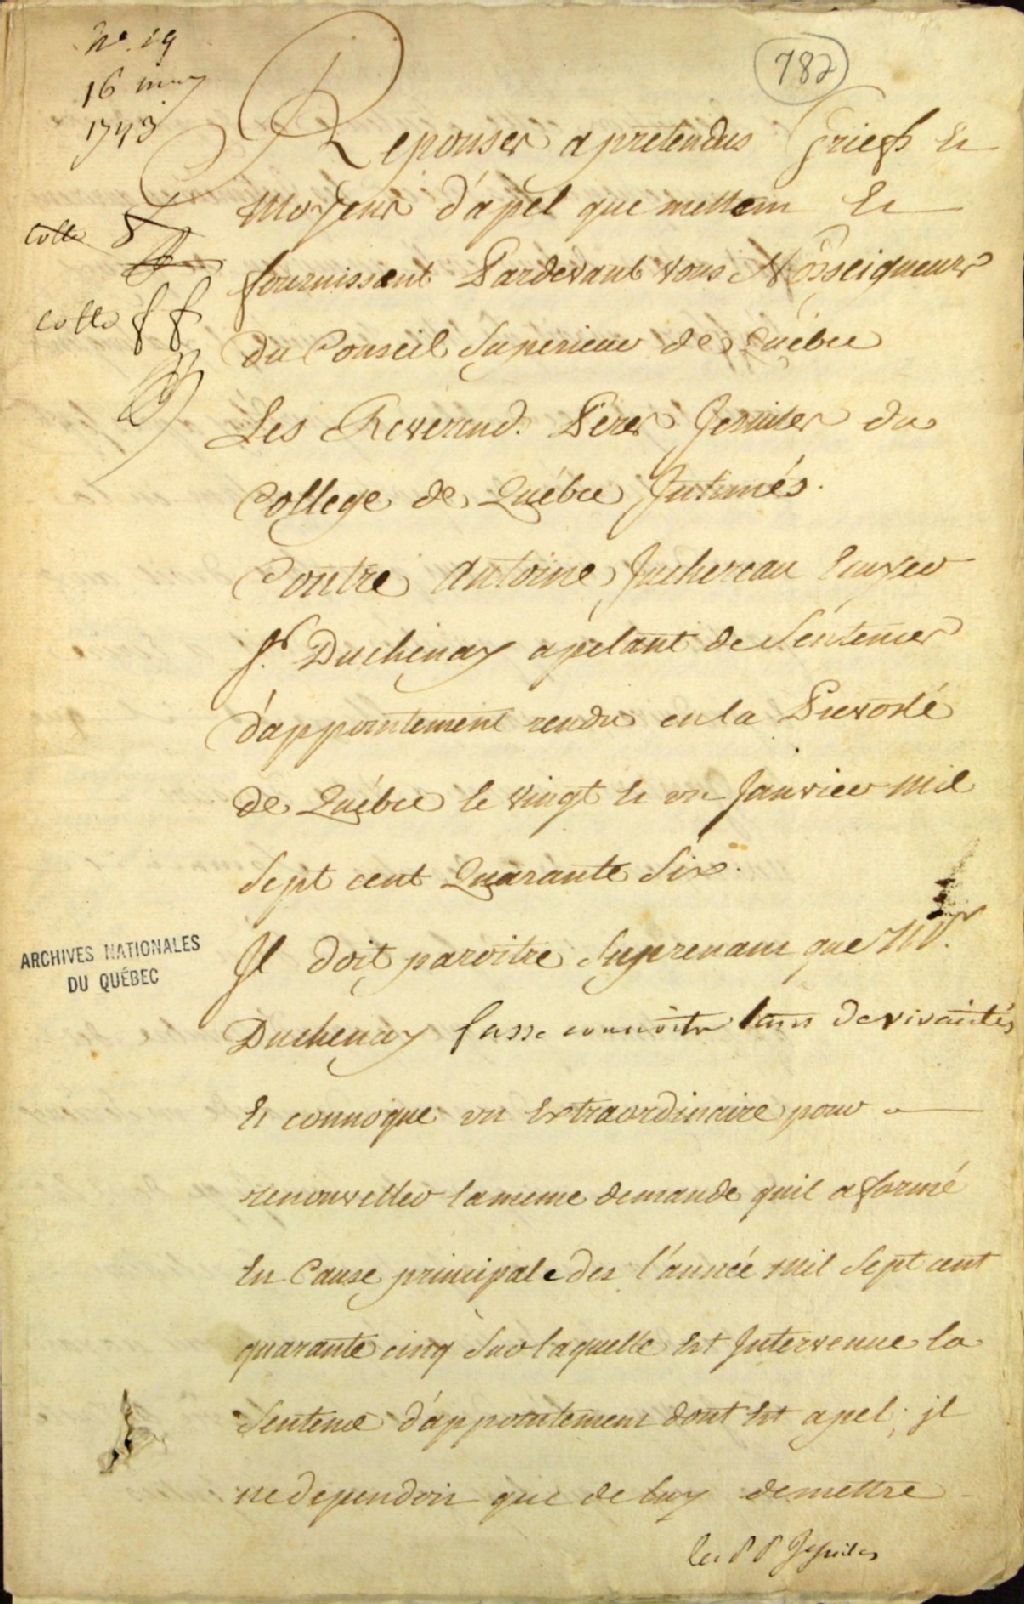 No. 19
16 may
1743
782
Reponses a pretendus Griefs et
Moyens d'apel que mettent et
fournissent Pardevant vous Nosseigneurs
du Conseil Superieur de Québec
cotté
cotté ff
Les Reverend. Peres Jesuites du
College de Québec Intimés.
Contre Antoine Juchereau Ecuyer
Sr. Duchenay apelant de Sentence
d'appointement rendu en la Prevosté
de Québec le vingt et un Janvier mil
Sept cent Quarante Six.
Il doit paroitre Suprenant que Mr.
ARCHIVES NATIONALES
DU QUÉBEC
Duchenay fasse connoitre
et convoque un Extraordinaire pour
renouveller la meme demande quil a formé
En Cause principale des l'année mil Sept cent
quarante cinq Sur laquelle Est Intervenue la
Sentence d'appointement dont Est apel; il
ne dependoit que de luy de mettre
les PP Jesuites